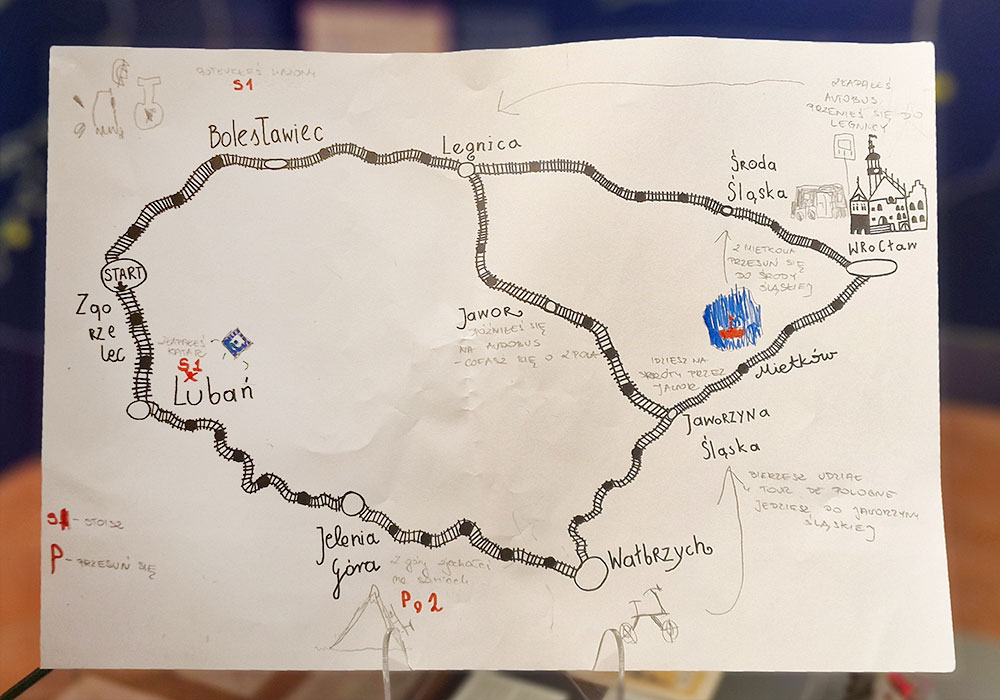 POTŁUKŁEŚ WAZONY
S1
ZŁAPAŁEŚ
AUTOBUS
PRZENIEŚ SIĘ DO
LEGNICY
Bolesławiec
Legnica
Środa
Śląska
WROCław
START
Zgo
rze
lec
Z MIETKOWA
PRZESUŃ SIĘ
DO ŚRODY
ŚLĄSKIEJ
JAWOR
SPÓŹNIŁEŚ SIĘ
NA AUTOBUS
- COFASZ SIĘ O 2 POLA
ZŁAPAŁEŚ
KATAR
S1
Lubań
IDZIESZ NA
SKRÓTY PRZEZ
JAWOR
Mietków
JAWORZYNA
Śląska
BIERZESZ UDZIAŁ
W TOUR DE POLOGNE
JEDZIESZ DO JAWORZYNY
ŚLĄSKIEJ
S - STOISZ
P - PRZESUŃ SIĘ
Jelenia
Góra
Z góry zjechałeś
na sankach
P 2
Wałbrzych